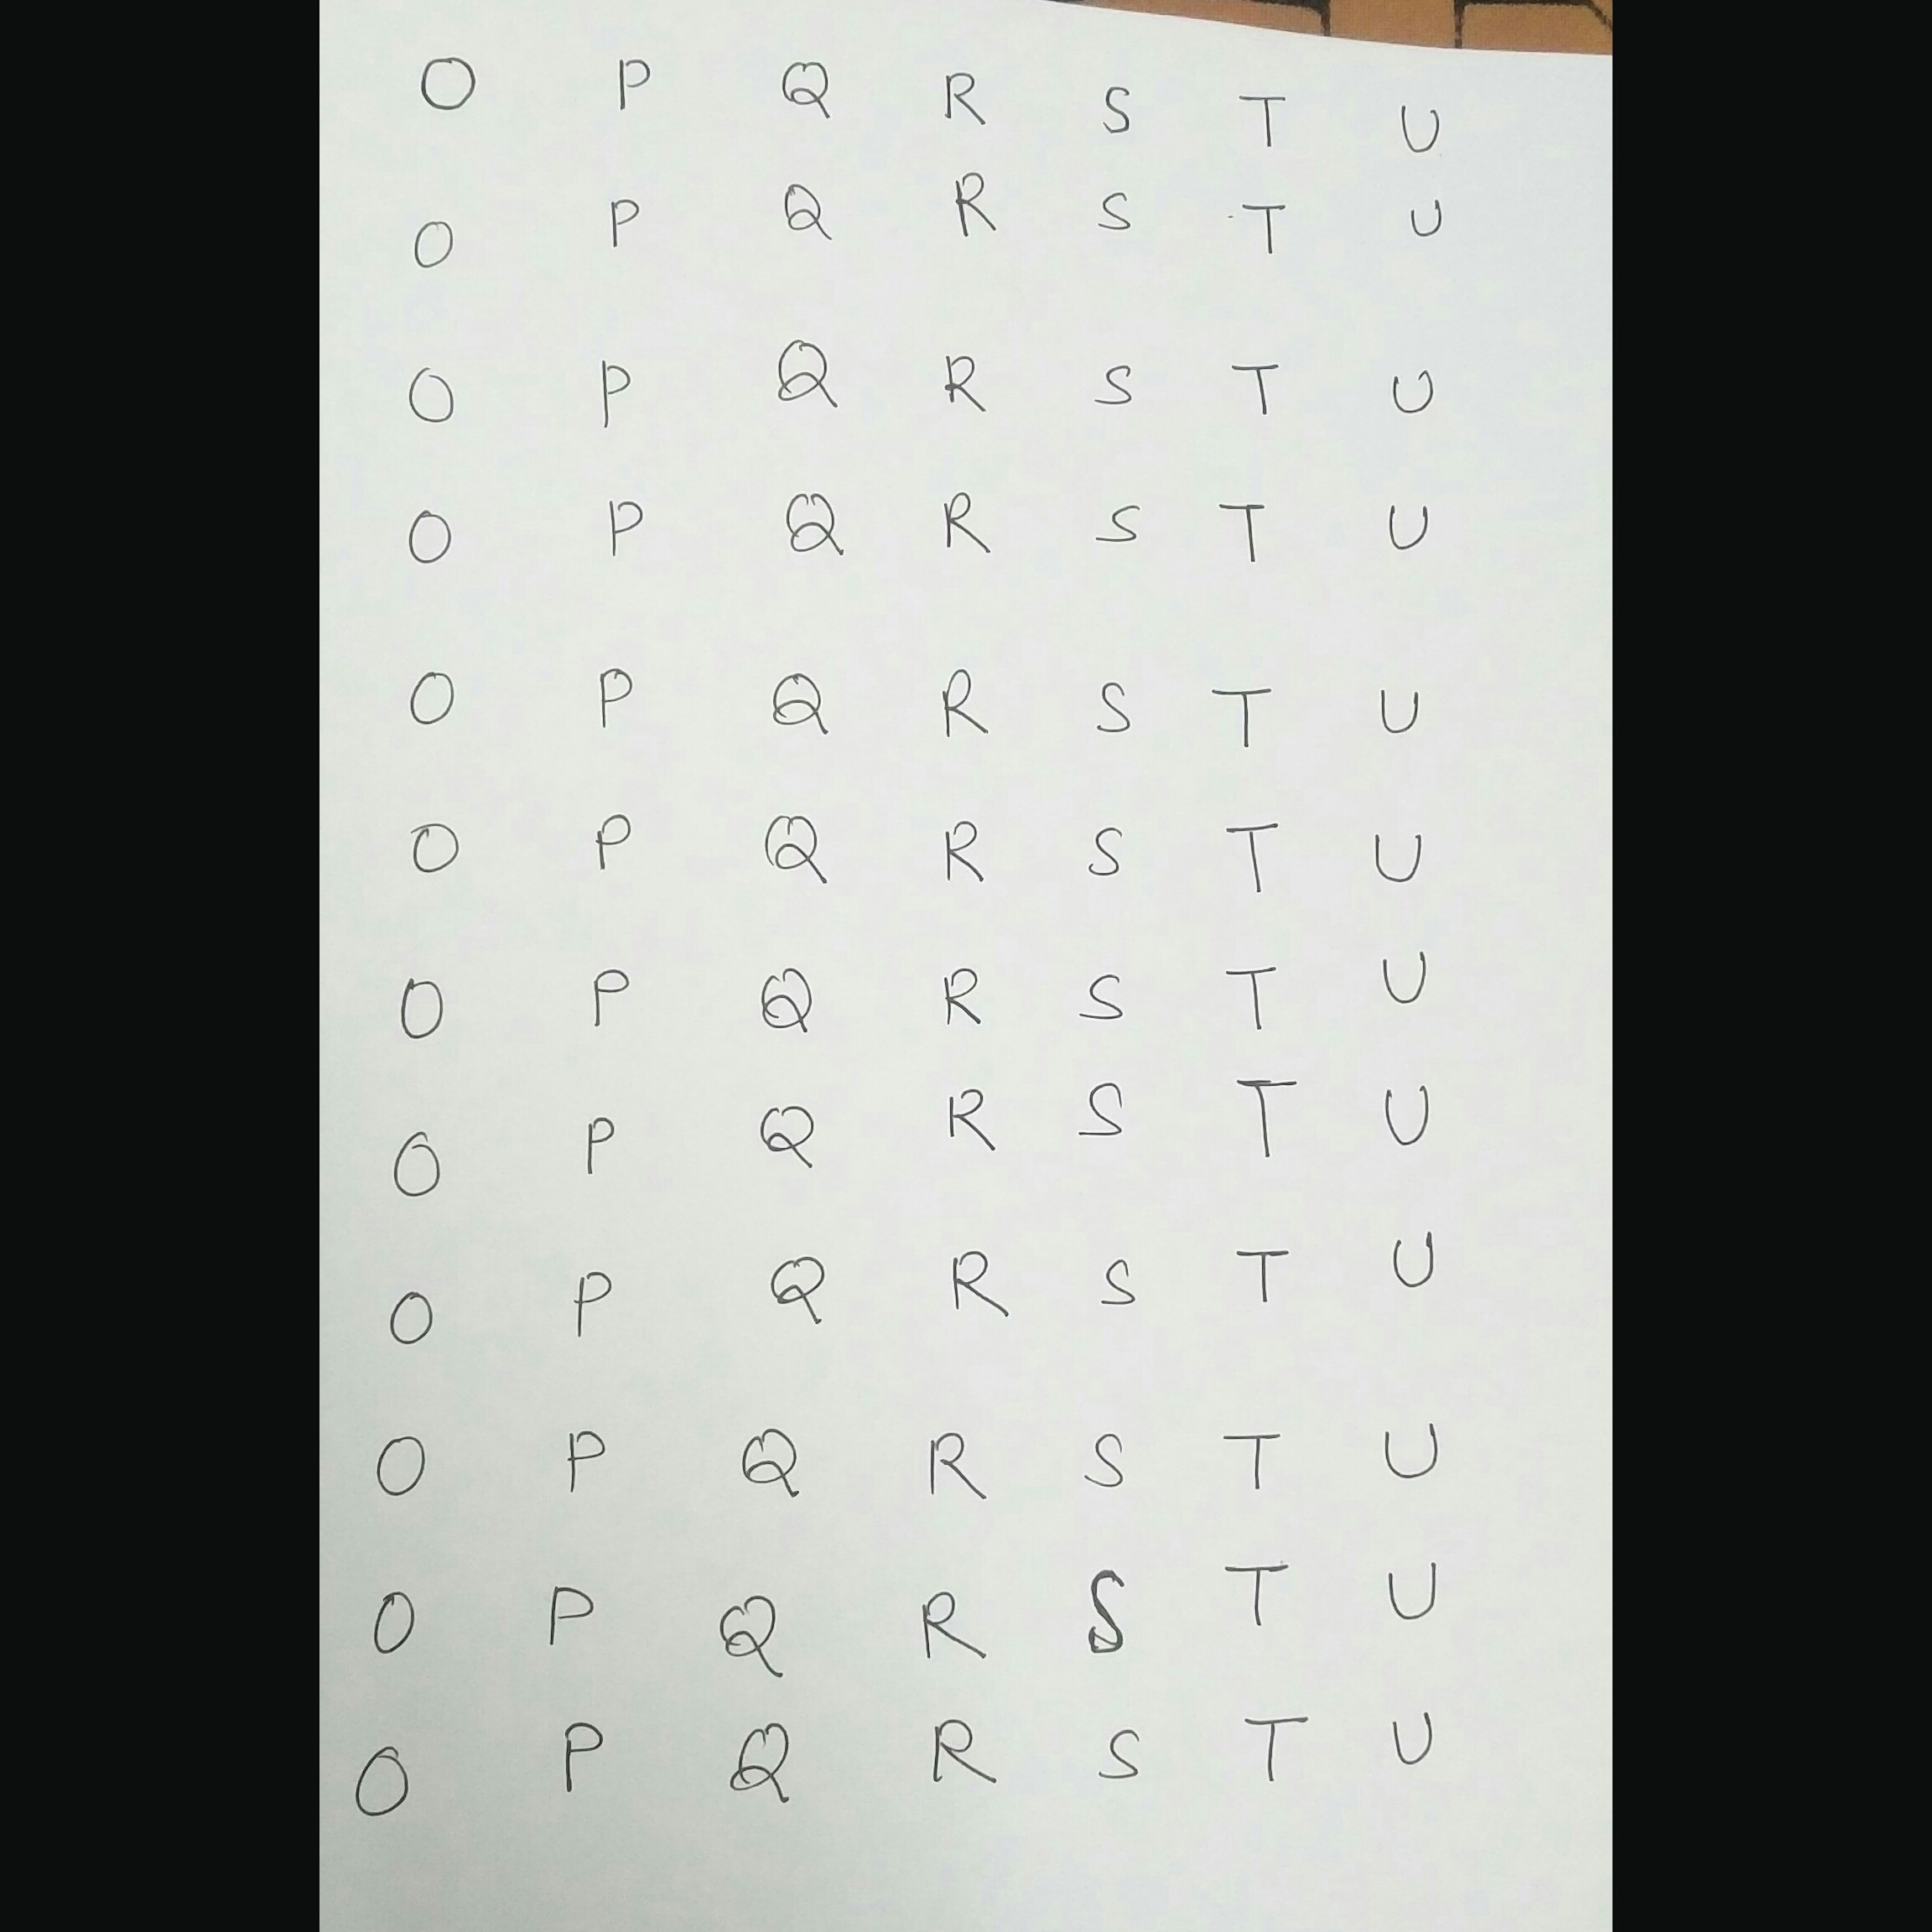 O P Q R S T U
O P Q R S T U
O P Q R S T U
O P Q R S T U
O P Q R S T U
O P Q R S T U
O P Q R S T U
O P Q R S T U
O P Q R S T U
O P Q R S T U
O P Q R S T U
O P Q R S T U